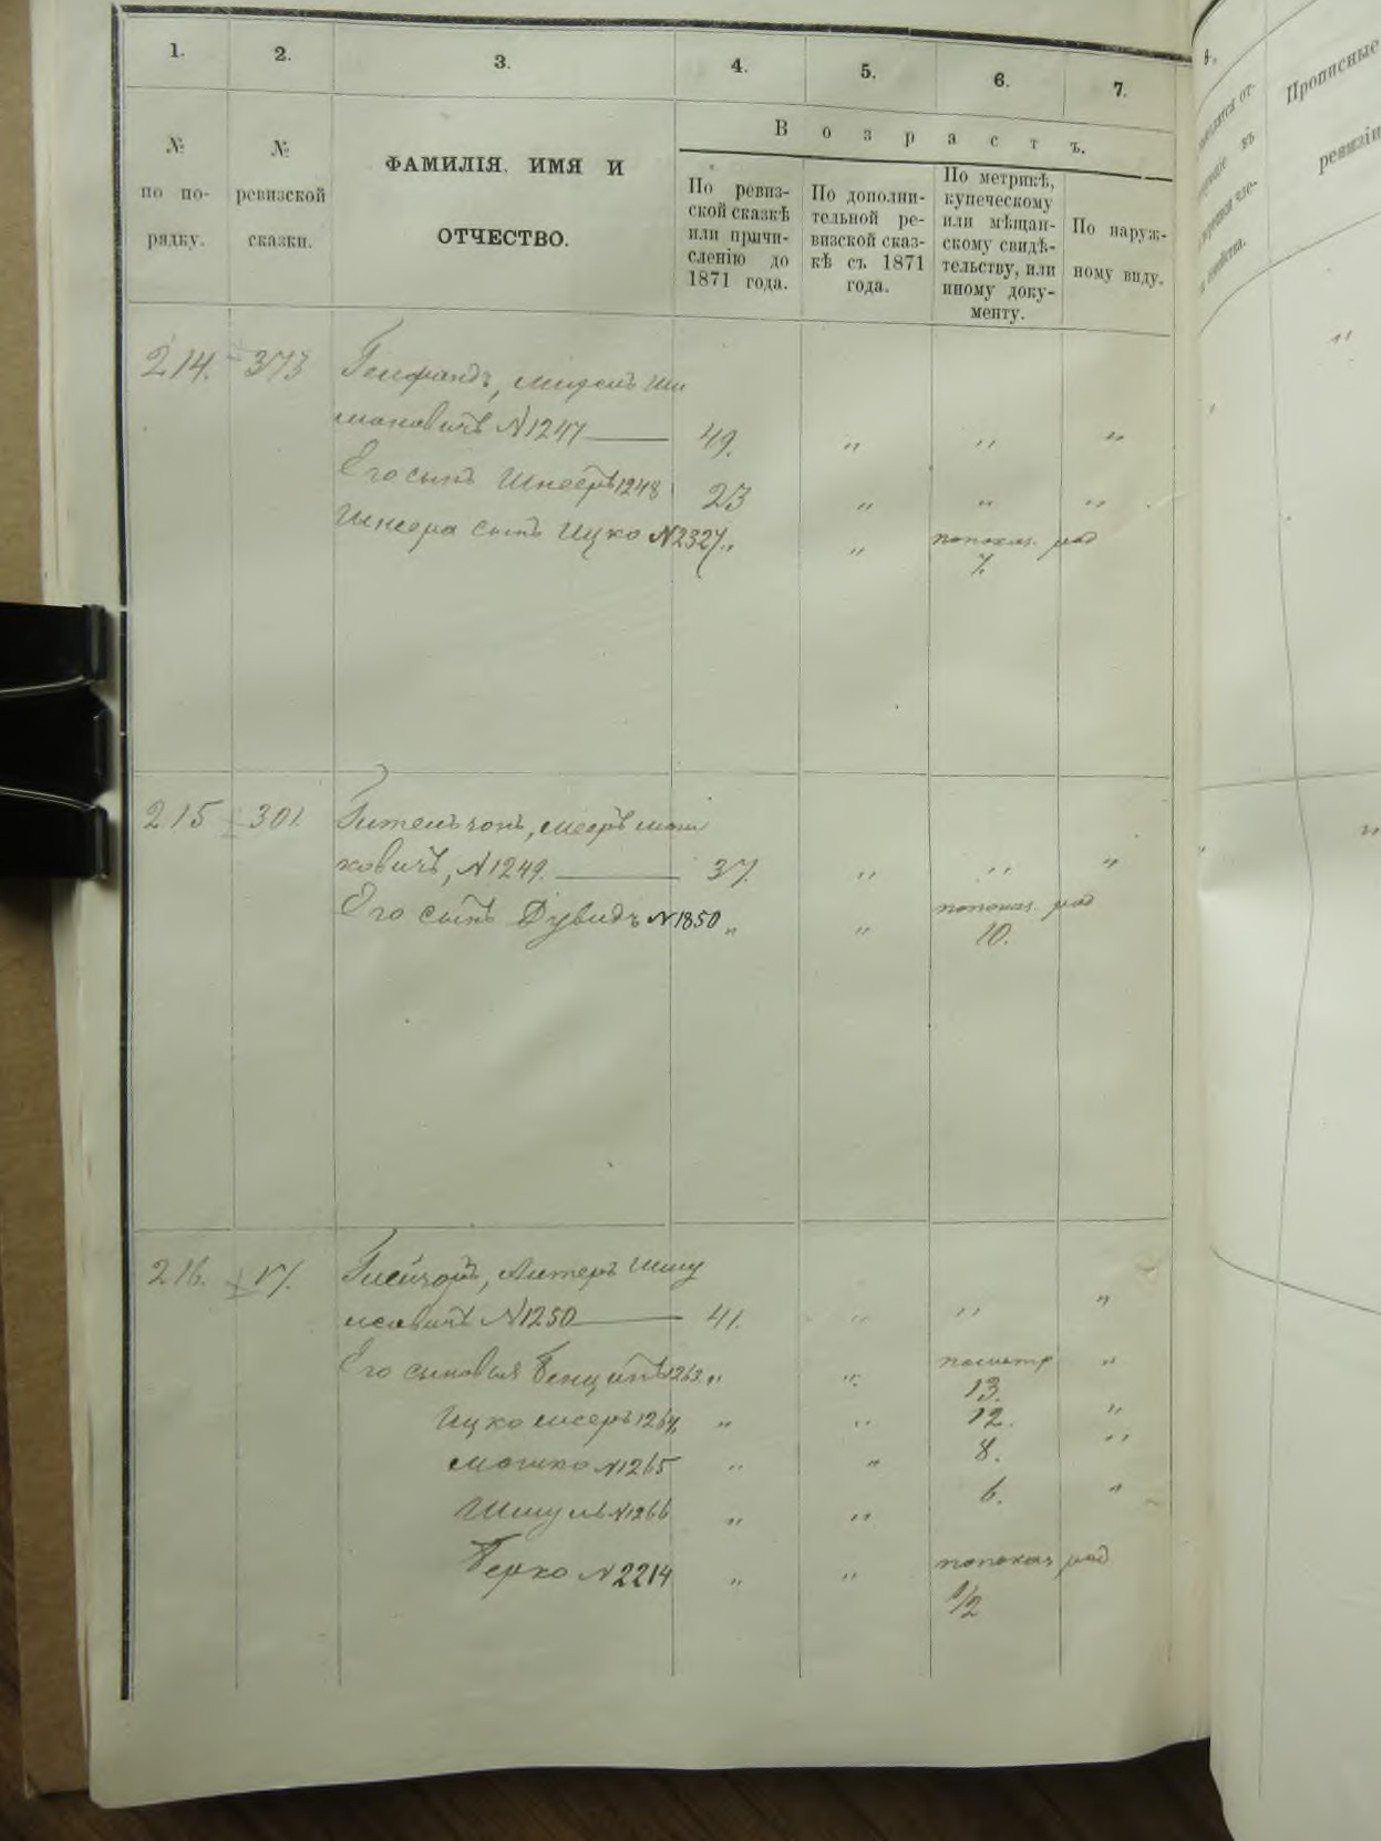 1. 2. 3. 4. 5. 6. 7.
№ по порядку.
№ ревизской сказки.
ФАМИЛІЯ, ИМЯ И
ОТЧЕСТВО.
Возрастъ.
По ревиз-
ской сказкѣ
или причи-
сленію до
1871 года.
По дополни-
тельной ре-
визской сказ-
кѣ съ 1871
года.
По метрикѣ,
купеческому
или мѣщан-
скому свидѣ-
тельству, или
иному доку-
менту.
По наруж-
ному виду.
214. 373 Гелфандъ,
мановичъ № 1247 49. " " "
Его сынъ Шнееръ 1248 23 " " "
Шнеера сынъ Ицко № 2327. " " попоказ. род
7.
215 301. Гительзонъ, Мееръ Мош
ковичъ, № 1249. 37. " " "
Его сынъ Дувидъ № 1850 " " попоказ. род
10.
216. 17. Глейзоръ, Алтеръ Шму
левичъ № 1250 41. " " "
Его сыновья Бенціонъ 1263. " " пометр "
13.
Ицко Мееръ 1264. " " 12. "
Мошко № 1265 " " 8. "
Шмуль № 1266 " " 6. "
Берко № 2214 " " попоказ род
1/2
Прописные
ревизіи